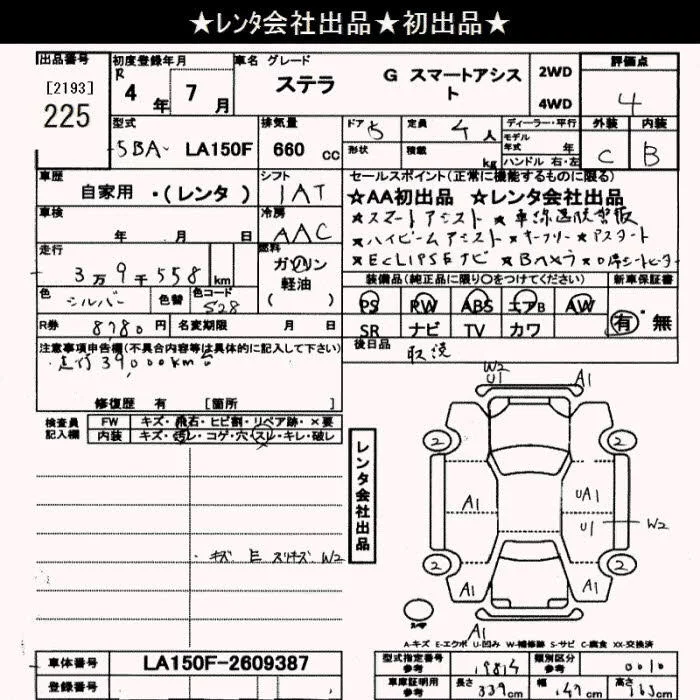 ★ﾚﾝﾀ会社出品★初出品★
出品番号
[2193]
225
初度登録年月
R 4 年 7 月
車名 グレード
ステラ
G スマートアシスト
2WD
4WD
評価点
4
型式
5BA- LA150F
排気量
660 cc
ドア 5
定員 4人
形状
積載 kg
ディーラー・平行
モデル年式 年
ハンドル 右・左
外装 内装
C B
車歴
自家用 ・(レンタ)
シフト
IAT
セールスポイント(正常に機能するものに限る)
★AA初出品 ★レンタ会社出品
★スマートアシスト ★車線逸脱警報
★ハイビームアシスト ★キーフリー ★Aスタート
★ECLIPSEナビ ★Bカメラ
車検
年 月 日
冷房
AAC
走行
3万9千558 km
燃料
ガソリン
軽油
( )
色
シルバー
色替
色コード
S28
装備品(純正品に限り○をつけてください)
新車保証書
PS PW ABS エアB AW
SR ナビ TV カワ
有・無
R券 8780 円
名変期限 月 日
後日品
取説
注意事項申告欄(不具合内容等は具体的に記入して下さい)
走行39,000km台
修復歴 有 [箇所
検査員記入欄
FW キズ・飛石・ヒビ割・リペア跡・×要
内装 キズ・汚レ・コゲ・穴・スレ・キレ・破レ
・キズ E スリキズ W2
レンタ会社出品
W2
U1
A1
2
2
A1
UA1
U1
W2
2
2
A1
A1
A1
スペア
A-キズ E-エクボ U-凹み W-補修跡 S-サビ C-腐食 XX-交換済
車体番号
LA150F-2609387
登録番号
型式指定番号参考
19814
類別区分参考
0010
車庫証明用参考
長さ 339cm
幅 147cm
高さ 163cm